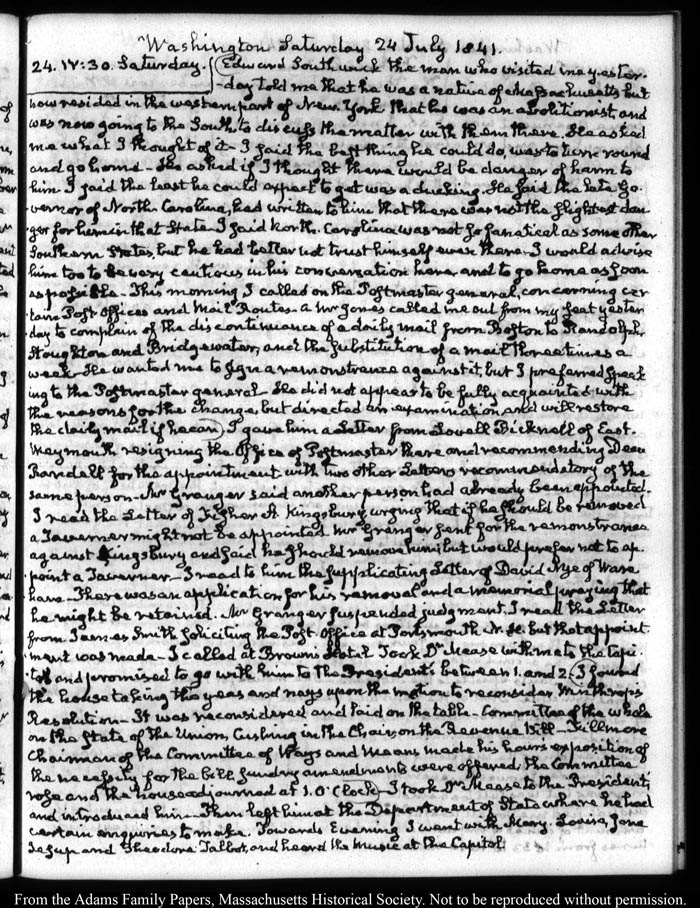 Washington Saturday 24 July 1841.
24. IV:30. Saturday. Edward Southwick the man who visited me yester-
-day told me that he was a native of Massachusetts but
now resided in the western part of New York that he was an abolitionist, and
was now going to the South to discuss the matter with them there. He asked
me what I thought of it - I said the best thing he could do, was to turn round
and go home - He asked if I thought there would be danger of harm to
him I said the least he could expect to get was a ducking. He said the late Go-
-vernor of North Carolina, had written to him that there was not the slightest dan-
-ger for him in that State. I said North Carolina was not so fanatical as some other
Southern States, but he had better not trust himself even there. I would advise
him too to be very cautious in his conversation here and to go home as soon
as possible - This morning I called on the Postmaster general, concerning cer-
-tain Post Offices and Mail Routes - a Mr Jones called me out from my seat yester
day to complain of the discontinuance of a daily mail from Boston to Randolph,
Stoughton and Bridgewater, and the substitution of a mail three times a
week - He wanted me to sign a remonstrance against it, but I preferred speak
ing to the Postmaster general. He did not appear to be fully acquainted with
the reasons for the change, but directed an examination and will restore
the daily mail if he can) I gave him a Letter from Lovell Bicknell of East.
Weymouth resigning the Office of Postmaster there and recommending Dean
Randell for the appointment with two other Letters recommendatory of the
same person - Mr Granger said another person had already been appointed.
I read the Letter of Fisher A. Kingsbury urging that if he should be removed
a Taverner might not be appointed. Mr Granger sent for the remonstrance
against Kingsbury and said he should remove him; but would prefer not to ap-
-point a Taverner - I read to him the supplicating Letter of David Nye of Ware
ham - There was an application for his removal and a memorial praying that
he might be retained. Mr Granger suspended judgment. I read the Letter
from James Smith soliciting the Post-Office at Portsmouth N. H. but that appoint
-ment was made - I called at Brown's Hotel Took Dr Mease with me to the Capi-
-tol and promised to go with him to the President's between 1. and 2. I found
the house taking the yeas and nays upon the motion to reconsider Winthrop's
Resolution - It was reconsidered and laid on the table. Committee of the whole
on the State of the Union, Cushing in the Chair on the Revenue Bill - Fillmore
Chairman of the Committee of Ways and Means made his hours exposition of
the necessity for the bill, sundry amendments were offered, the Committee
rose and the house adjourned at 1. O'Clock - I took Dr Mease to the President,
and introduced him - Then left him at the Department of State where he had
certain enquiries to make. Towards Evening I went with Mary. Louisa, Jane
Jesup and Theodora Talbot, and heard the Music at the Capitol.
From the Adams Family Papers, Massachusetts Historical Society. Not to be reproduced without permission.